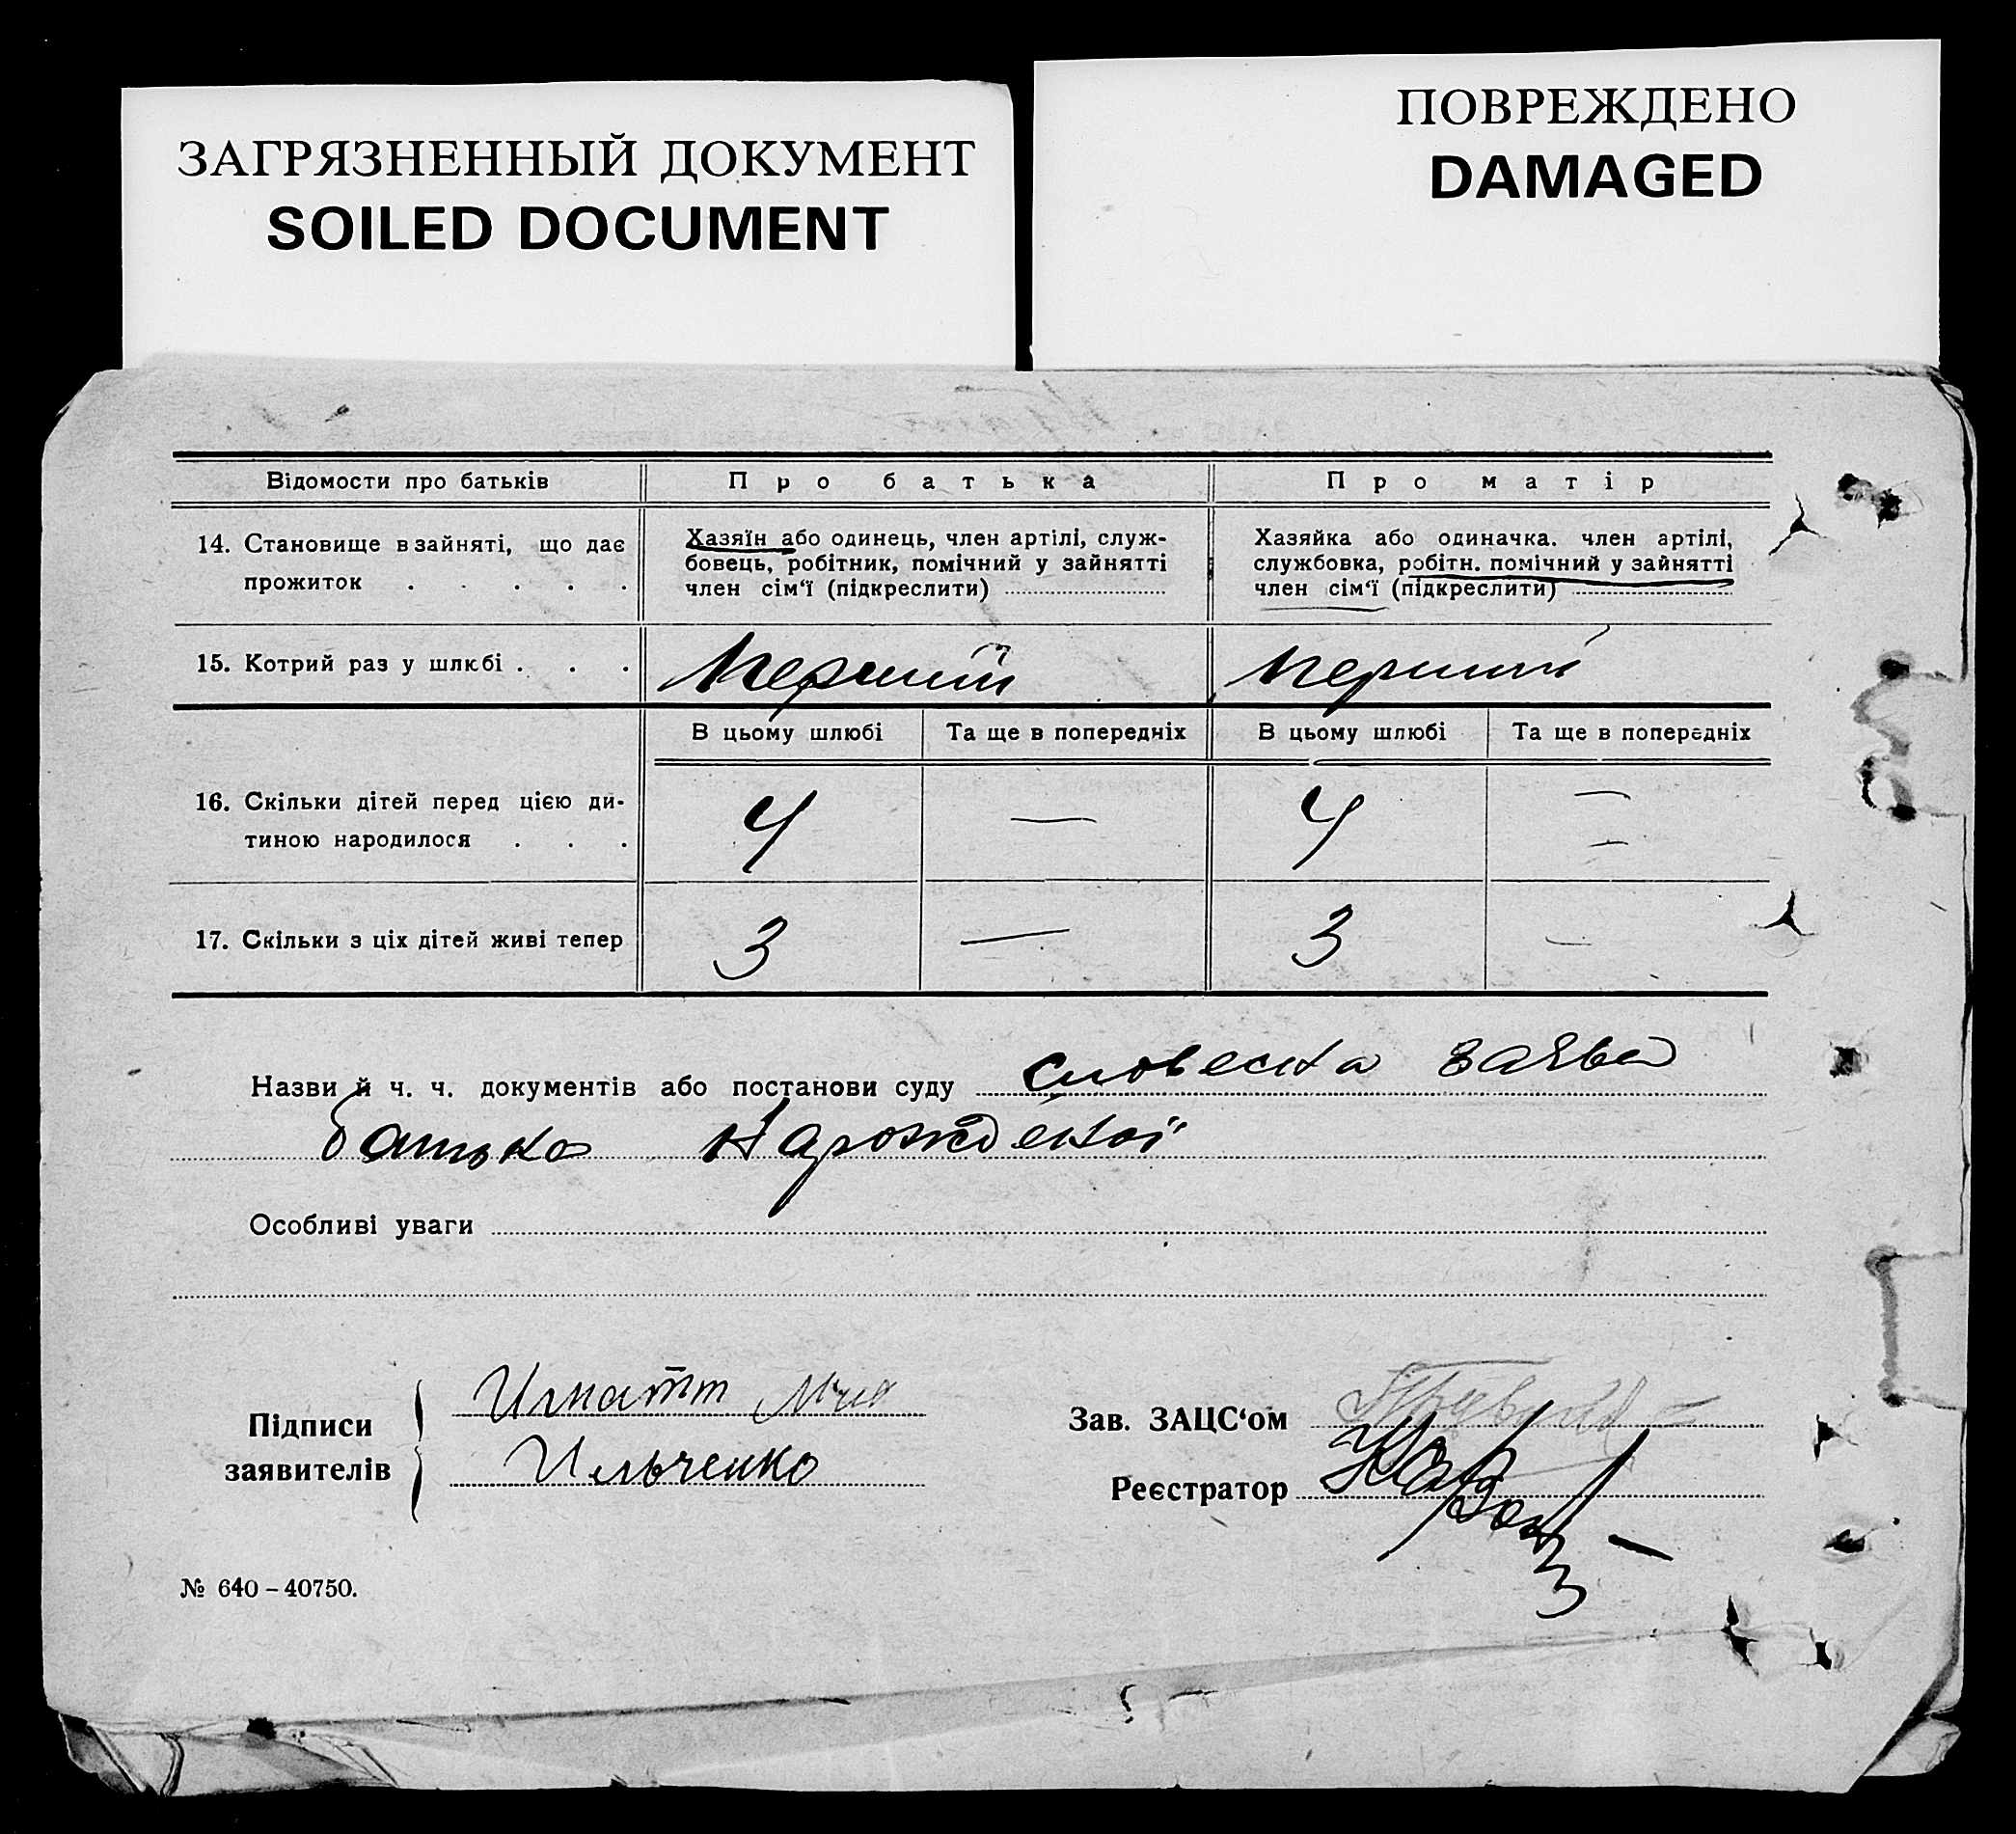 ЗАГРЯЗНЕННЫЙ ДОКУМЕНТ
SOILED DOCUMENT
ПОВРЕЖДЕНО
DAMAGED
Відомости про батьків
Про батька
Про матір
14. Становище в зайняті, що дає
прожиток . . . . .
Хазяїн або одинець, член артілі, служ-
бовець, робітник, помічний у зайнятті
член сім‘ї (підкреслити)
Хазяйка або одиначка. член артілі,
службовка, робітн. помічний у зайнятті
член сім‘ї (підкреслити)
15. Котрий раз у шлюбі . . .
Перший
перший
В цьому шлюбі
Та ще в попередніх
В цьому шлюбі
Та ще в попередніх
16. Скільки дітей перед цією ди-
тиною народилося . . .
4 — 4 —
—
17. Скільки з ціх дітей живі тепер
3 — 3 —
Назви й ч. ч. документів або постанови суду словесна заява
батька нарожденої
Особливі уваги
Підписи
заявителів
Ильченко
Зав. ЗАЦС‘ом
Реєстратор
№ 640 – 40750.